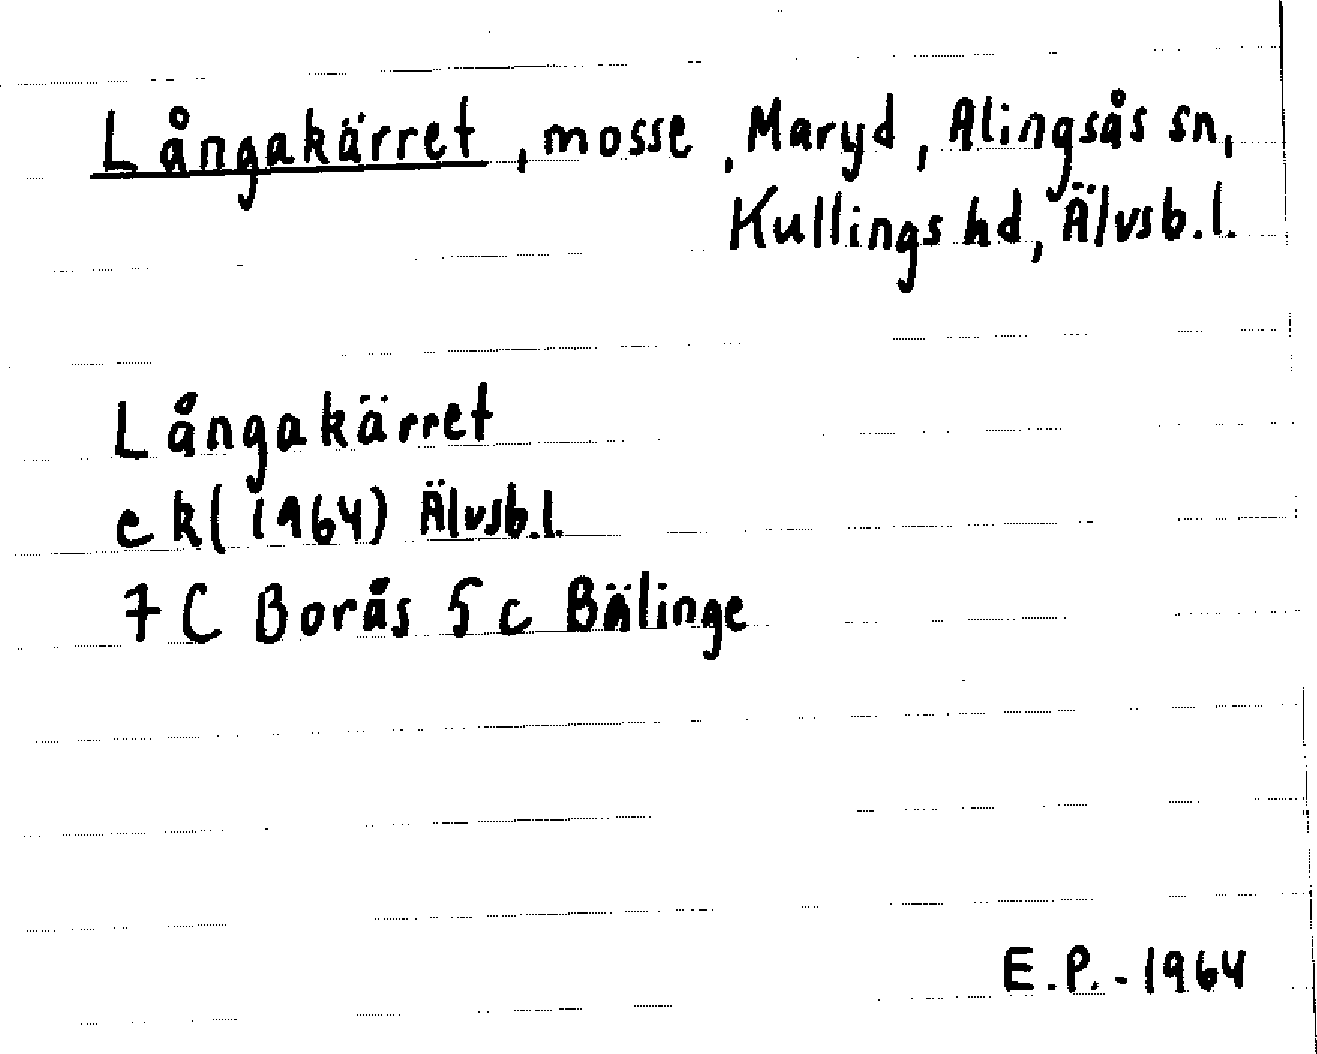 Långakärret, mosse, Maryd, Alingsås sn,
Kullings hd, Älvsb.l.
Långakärret
ek(1964) Älvsb.l.
7 C Borås 5 c Bälinge
E.P. - 1964